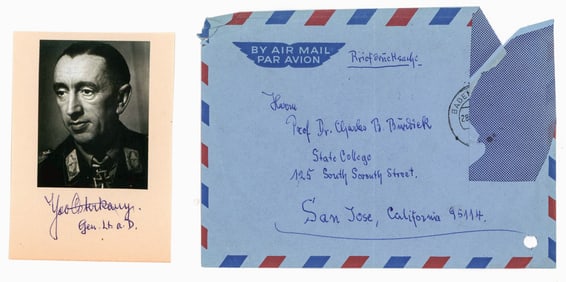 Gen. Lt. a. D.
BY AIR MAIL
PAR AVION
Herrn
Prof. Dr. Charles B. Burdick
State College
125 South Seventh Street.
San Jose, California 95114.
BADEN